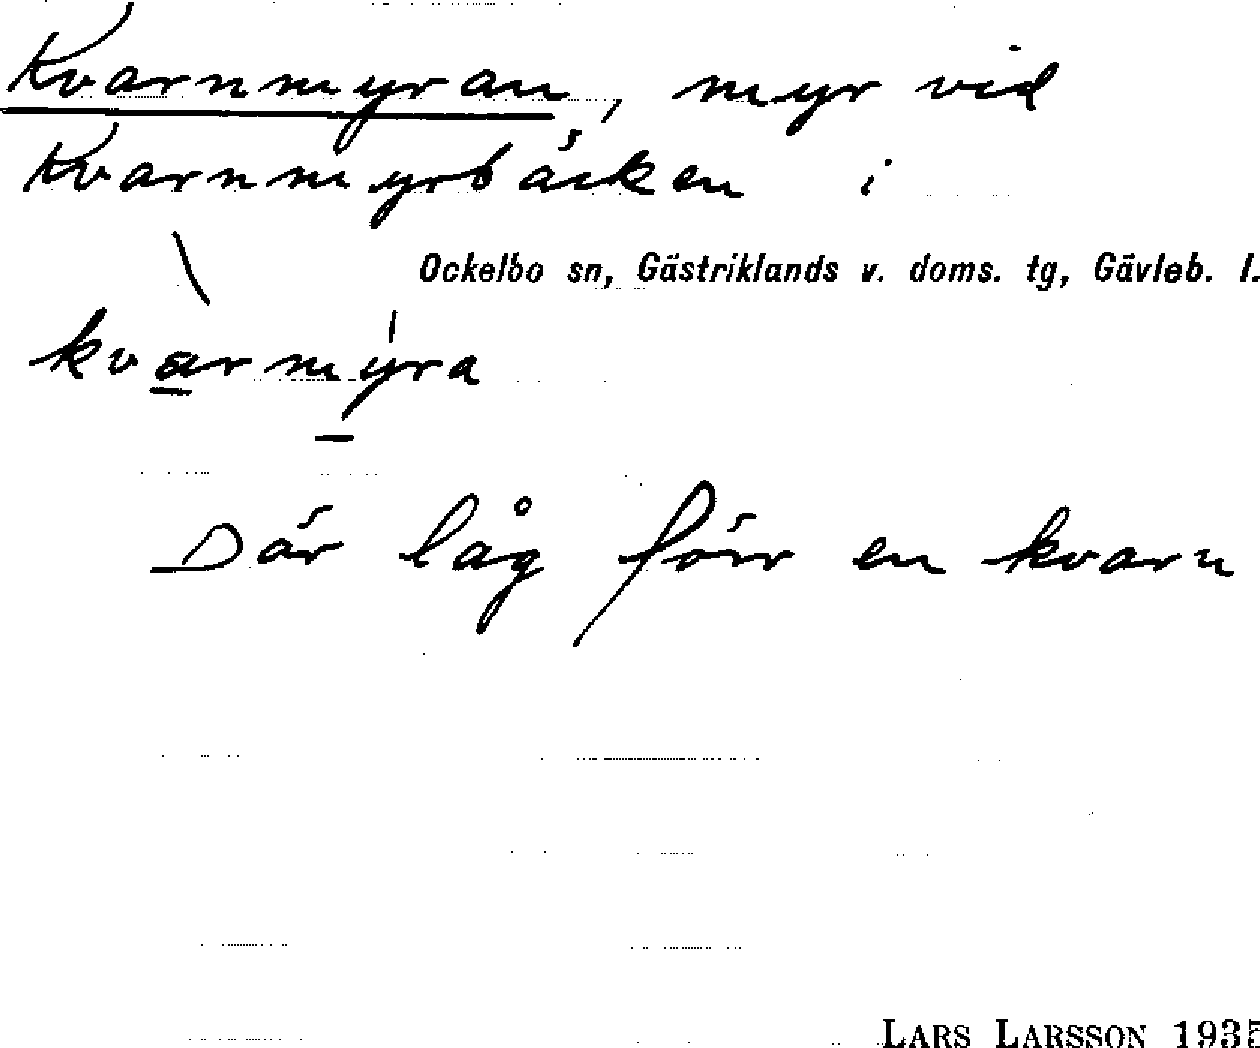 Kvarnmyran, myr vid
Kvarnmyrbäcken i
Ockelbo sn, Gästriklands v. doms. tg, Gävleb. l.
kvàrmýra
Där låg förr en kvarn
LARS LARSSON 1935